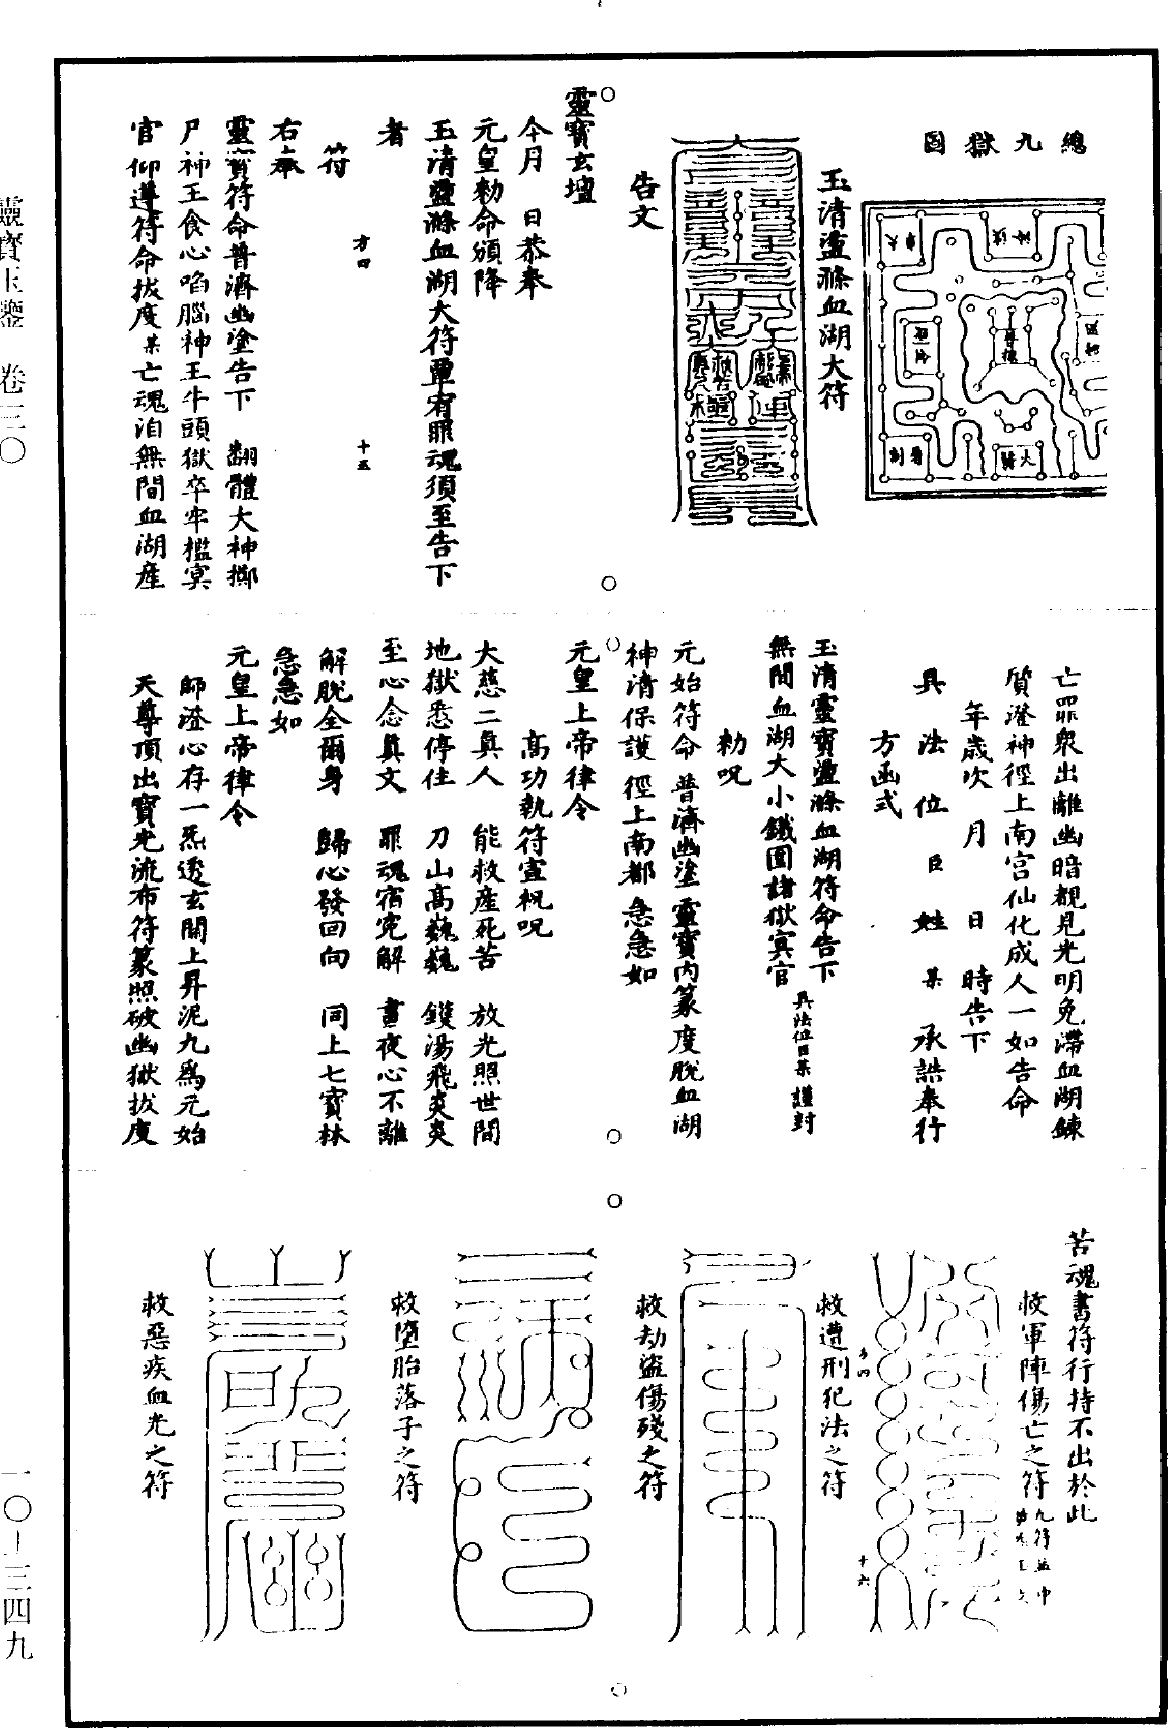 靈寶玉鑒　卷三〇
一〇—三四九
總九獄圖
玉清盪滌血湖大符
告文
靈寶玄壇
今月　日恭奉
元皇勑命頒降
玉清盪滌血湖大符覃宥罪魂須至告下
者
符
方四　十五
右奉
靈寶符命普濟幽塗告下　翻體大神擲
尸神王食心啗腦神王牛頭獄卒牢檻冥
官仰遵符命拔度某亡魂洎無間血湖產
亡罪衆出離幽暗覩見光明免滯血湖鍊
質澄神徑上南宮仙化成人一如告命
年歲次　月　日　時告下
具　法　位　臣　姓　某　承誥奉行
方函式
玉清靈寶盪滌血湖符命告下
無間血湖大小鐵圍諸獄冥官　具法位臣某　謹封
勑呪
元始符命　普濟幽塗　靈寶內篆　度脫血湖
神清保護　徑上南都　急急如
元皇上帝律令
高功執符宣祝呪
大慈二真人　能救產死苦　放光照世間
地獄悉停住　刀山高巍巍　鑊湯飛炎炎
至心念真文　罪魂宿寃解　晝夜心不離
解脫全爾身　歸心發回向　同上七寶林
急急如
元皇上帝律令
師澄心存一炁透玄關上昇泥丸爲元始
天尊頂出寶光流布符篆照破幽獄拔度
苦魂書符行持不出於此
救軍陣傷亡之符　九符並中
救遭刑犯法之符
方四　十六
救劫盜傷殘之符
救墮胎落子之符
救惡疾血光之符